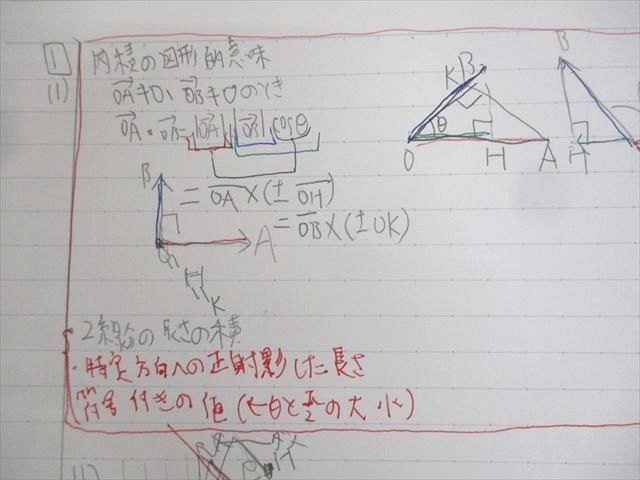 1 内積の図形的意味
(1) OA≠0, OB≠0のとき
OA・OB=|OA||OB|cosθ
= OA×(±OH)
= OB×(±OK)
B
A
O
H
K
K B
θ
O H A
B
H
・2線分の長さの積
・特定方向への正射影した長さ
符号付きの値(←θとπ/2の大小)